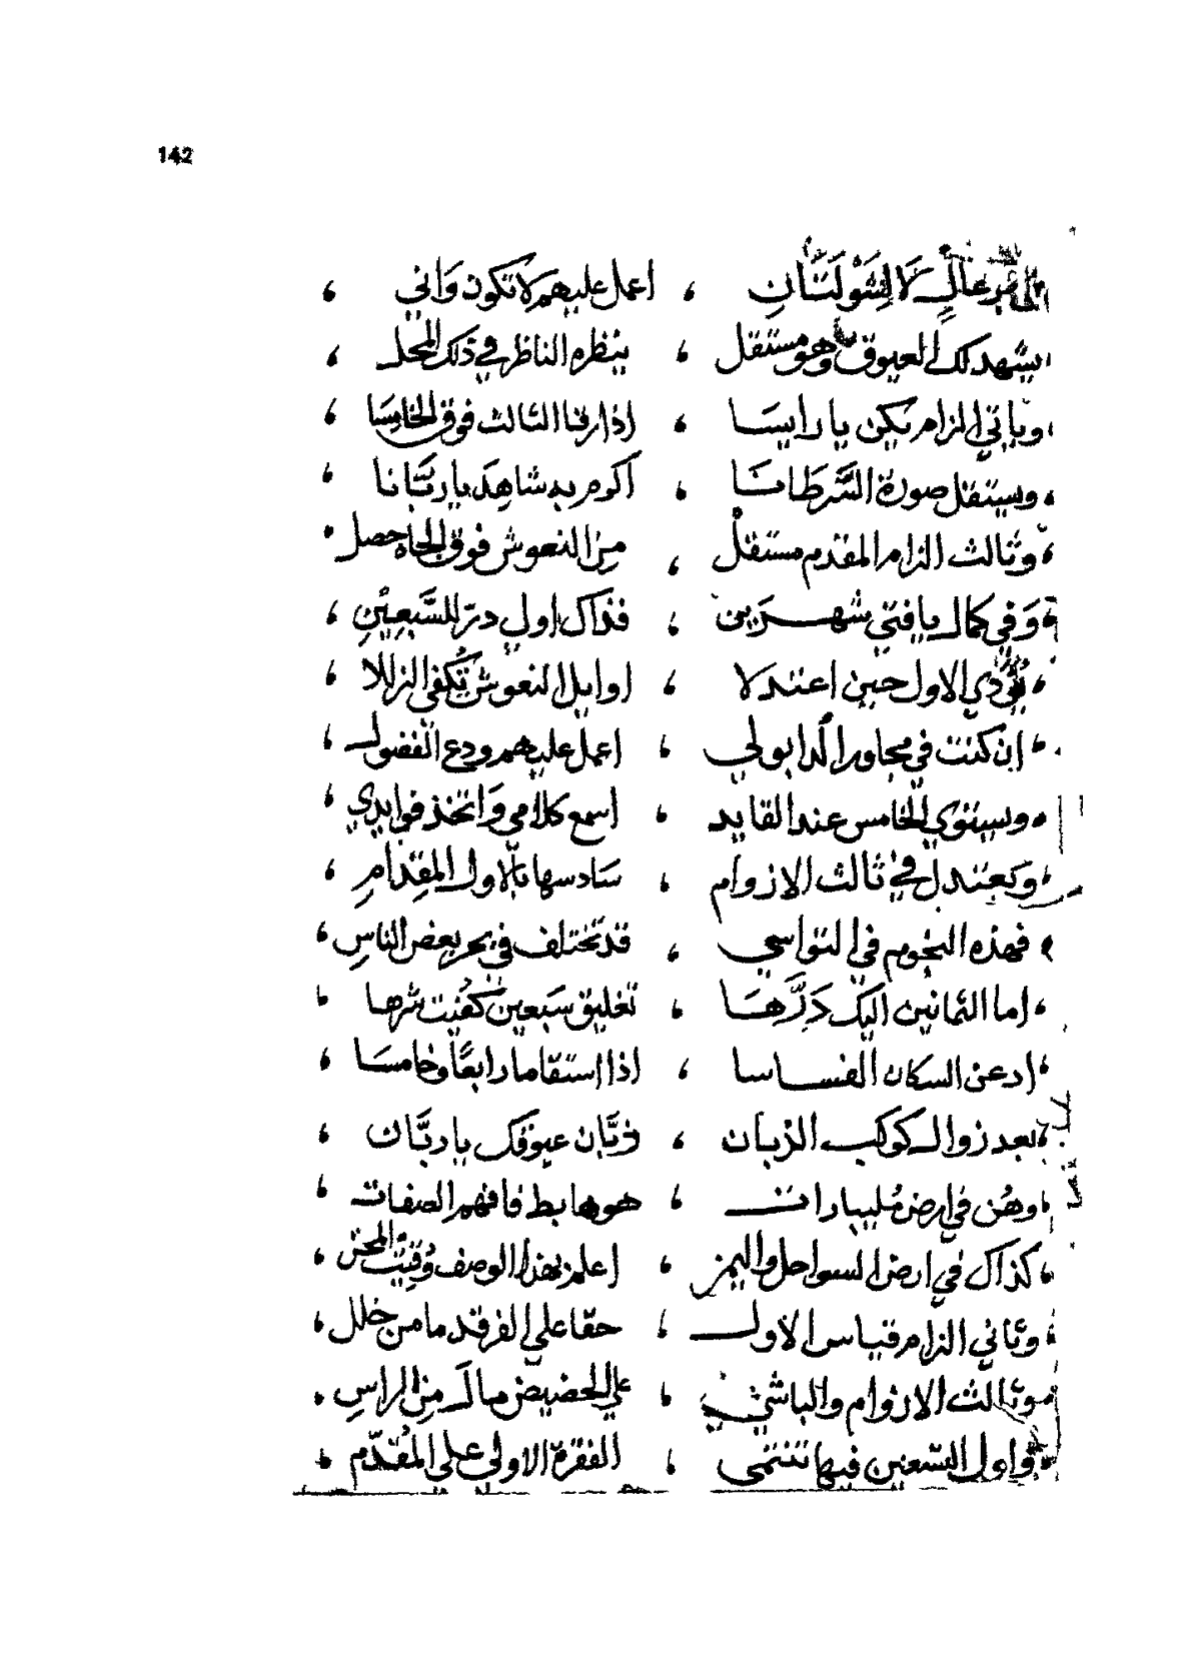 142
عال لا لشَوْلَتَانِ ، اعمل عليهم لا تكون وَاني ،
يشهد لك العيوق وهو مستقل ، ينظره الناظر في ذلك المحل ،
وياتي الزام يكن يا رايسَا ، اذا رقا الثالث فوق الخامِسَا ،
، ويستقل صورة السَّرَطَانَا ، اكرم به شاهِدَ يا ربَّانا ،
، وثالث الزام المقدم مستقل ، مِن النعوش فوق الجاه حصل ،
وَفي كمال يا فتي شهرَين ، فذاك اول درّ للسَّبعِيْنِ ،
، تُؤدي الاول حين اعتدلا ، اوايل النعوش تُكفي الزللا ،
، ان كنت في مجاور الدابولي ، اعمل عليهم ودع الفضول ،
، ويستوي الخامس عند القايد ، اسمع كلامي وَاتخذ فوايدي ،
، وكعتدل في ثالث الازوام ، سَادسها بالاول المِقدَامِ ،
، فهذه النجوم في التواسي ، قد تختلف في بحر بعض الناسِ ،
، اما الثمانين اليك دَرَّهَا ، تغليق سَبعين كُفيت شرها ،
، ادعن السكان الفساسا ، اذا استقاما رابعًا وخامسَا ،
، بعد زوال كوكب الزبان ، ذبَّان عيوقك يا ربَّان ،
، وهُن في ارض مُليبارات ، هو هابط فافهم الصفات ،
، كذاك في ارض السواحل واليمن ، اعلم بهذا الوصف وُقيتَ المحن ،
، وثاني الزام قياس الاول ، حقا علي الفرقد ما من خلل ،
وثالث الازوام والباشي ، علي الحضيض مال مِن الراسِ ،
، واول التسعين فيها تنتمي ، الفقرة الاولى على المُقدَّم ،